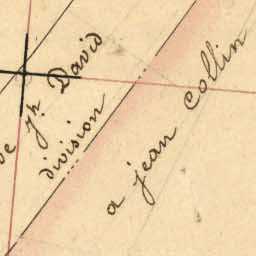 de Jh David
division
a jean Collin